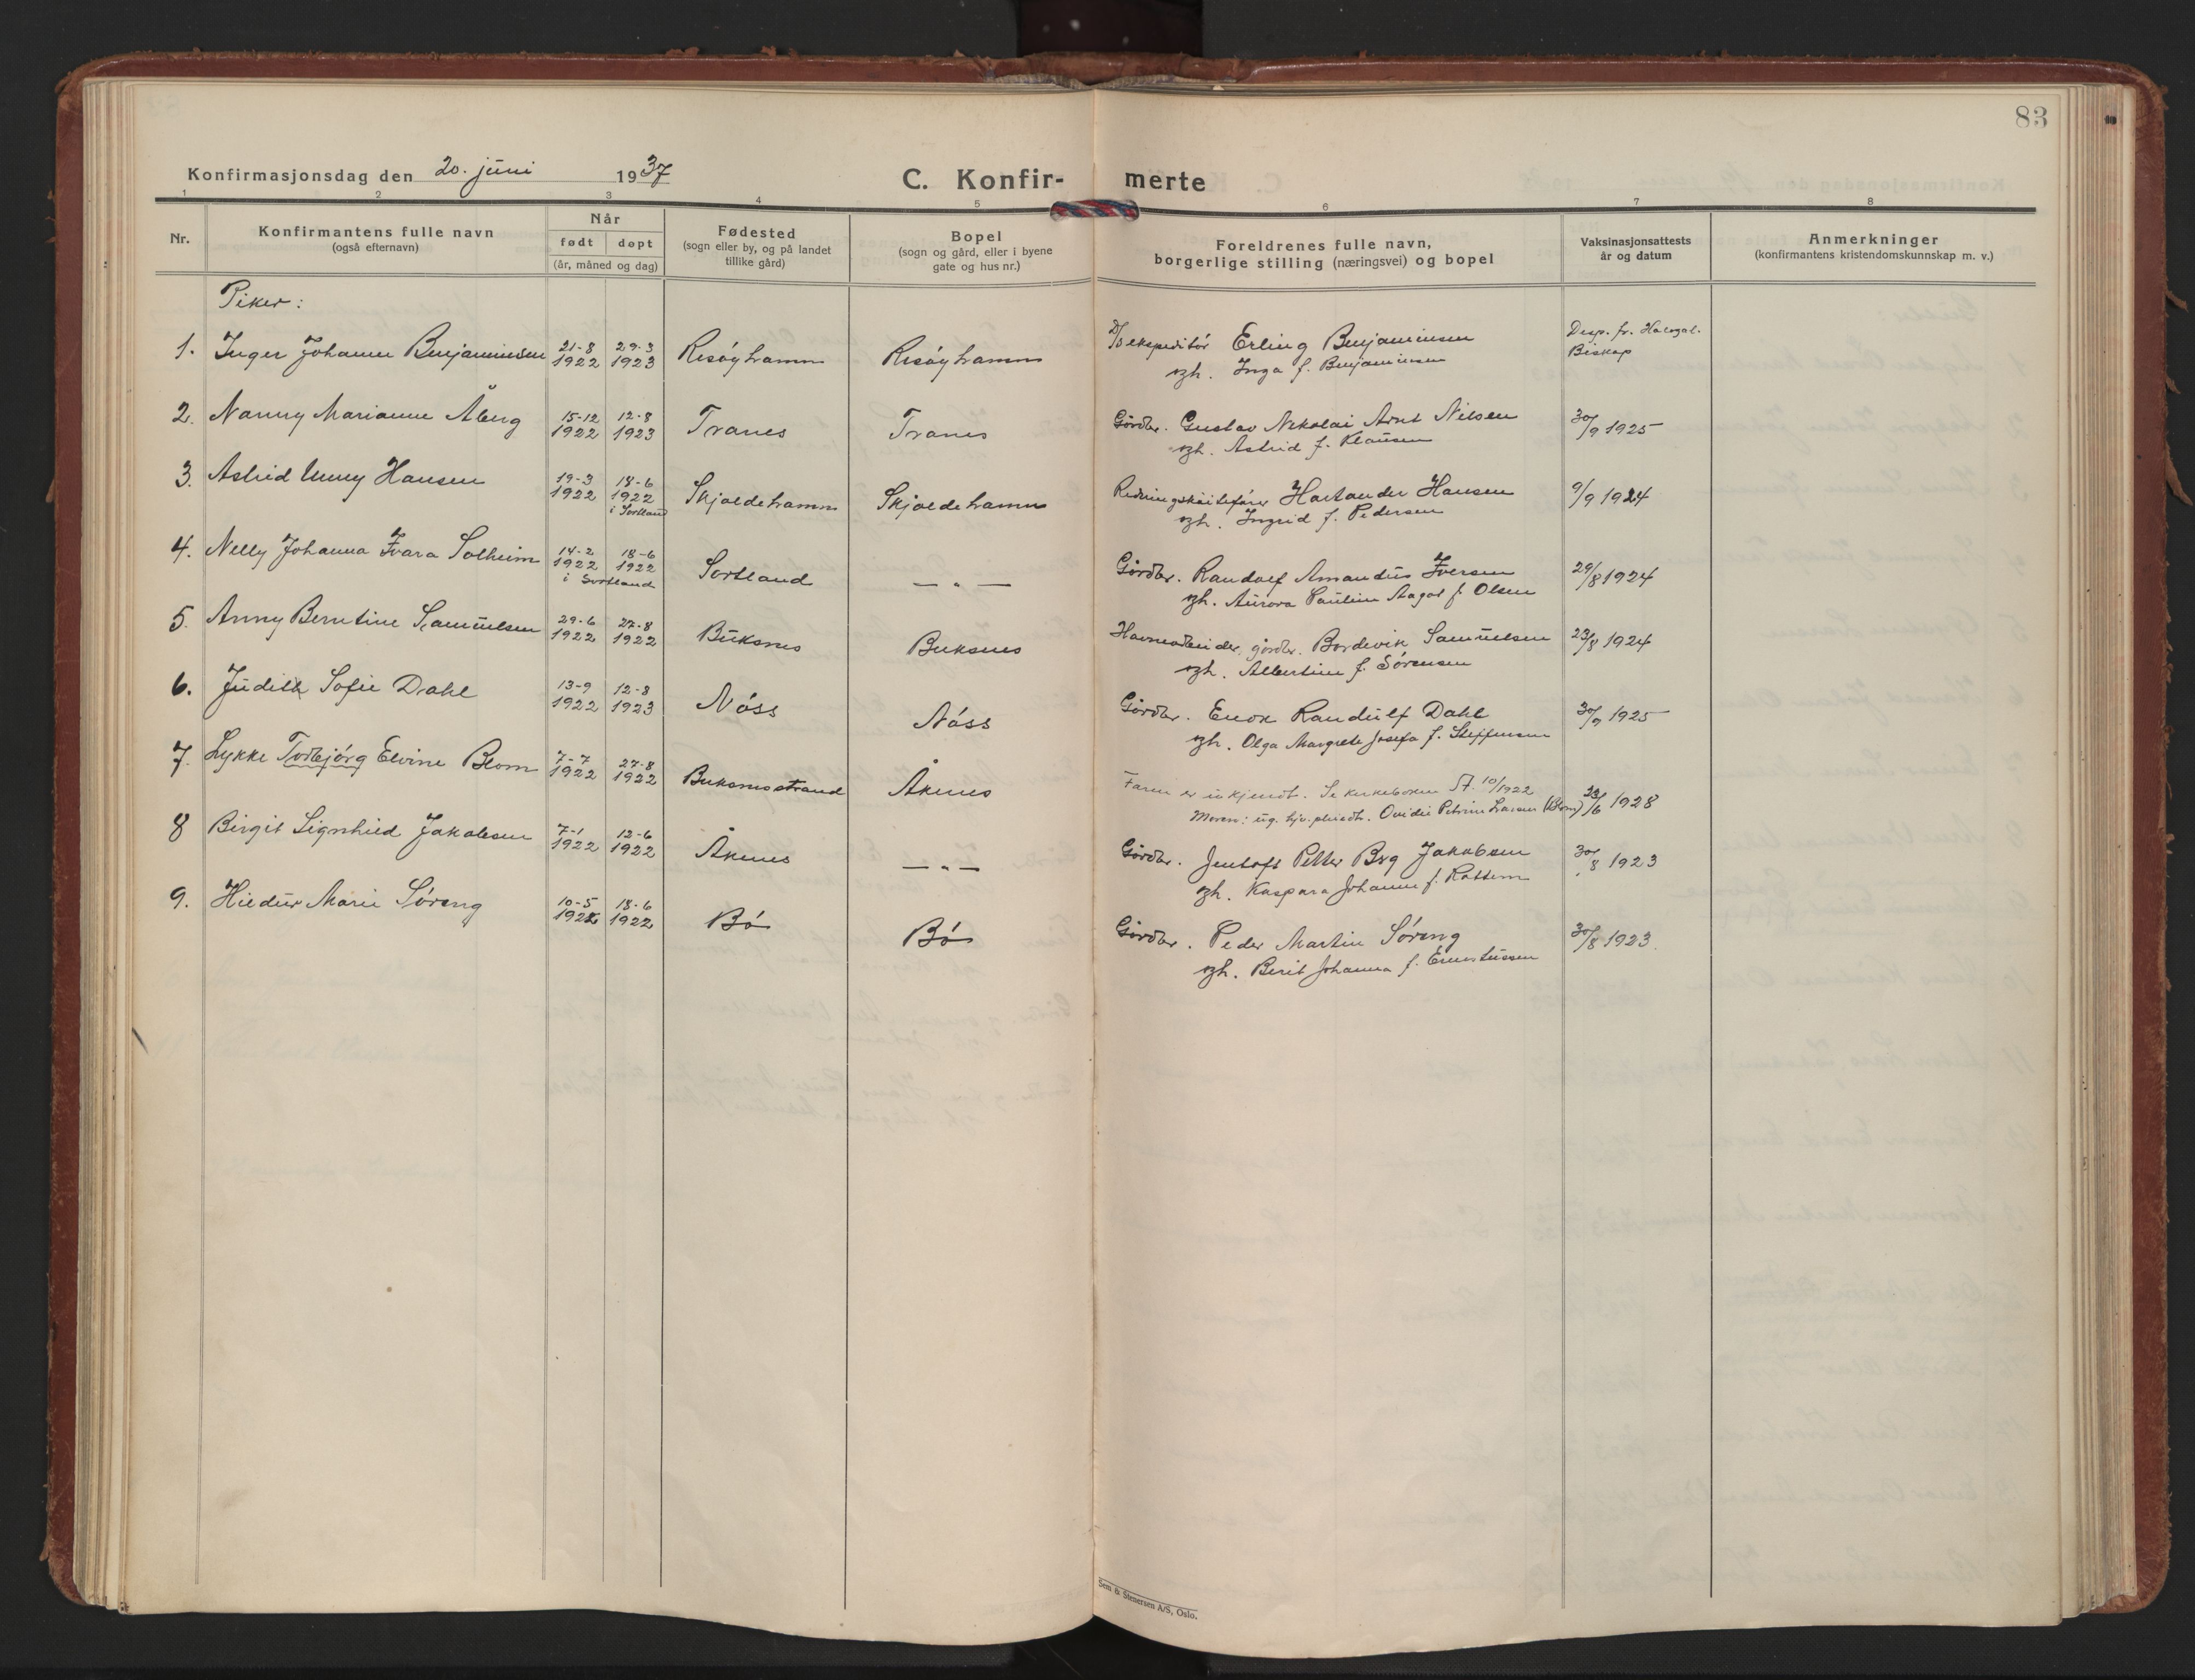 83
Konfirmasjonsdag den 20. juni 1937
C. Konfir- merte
1 2 3 4 5 6 7 8
Nr.
Konfirmantens fulle navn
(også efternavn)
Når
født døpt
(år, måned og dag)
Fødested
(sogn eller by, og på landet
tillike gård)
Bopel
(sogn og gård, eller i byene
gate og hus nr.)
Foreldrenes fulle navn,
borgerlige stilling (næringsvei) og bopel
Vaksinasjonsattests
år og datum
Anmerkninger
(konfirmantens kristendomskunnskap m. v.)
Piker:
1. Inger Johanne Benjaminsen 21-8 1922 29-3 1923 Risøyhamn Risøyhamn D/S ekspeditør Erling Benjaminsen Desp. fr. Halogal.
og h. Inga f. Benjaminsen Biskop
2. Nanny Marianne Åberg 15-12 1922 12-8 1923 Tranes Tranes Gårdbr. Gustav Nikolai Arnt Nilsen 30/9 1925
og h. Astrid f. Klausen
3. Astrid Unny Hansen 19-3 1922 18-6 1922 i Sortland Skjoldehamn Skjoldehamn Redningsskøitefører Hartander Hansen 9/9 1924
og h. Ingrid f. Pedersen
4. Nelly Johanna Ivara Solheim 14-2 1922 18-6 1922 i Sortland Sortland — " — Gårdbr. Randolf Amandus Iversen 29/8 1924
og h. Aurora Pauline Aagot f. Olsen
5. Anny Berntine Samuelsen 29-6 1922 27-8 1922 Buksnes Buksnes Havnearbeider, gårdbr. Bordevik Samuelsen 23/8 1924
og h. Albertine f. Sørensen
6. Judith Sofie Dahl 13-9 1922 12-8 1923 Nøss Nøss Gårdbr. Enok Randulf Dahl 30/9 1925
og h. Olga Margrete Josefa f. Steffensen
7. Lykke Torbjørg Elvine Blom 7-7 1922 27-8 1922 Buksnesstrand Åknes Faren er ukjendt. Se kirkeboken 10/1922
Moren: ug. hjv. Ovidie Petrine Larsen (Blom) 23/6 1928
8 Birgit Signhild Jakobsen 7-1 1922 12-6 1922 Åknes — " — Gårdbr. Jentoft Petter Brg Jakobsen 30/8 1923
og h. Kaspara Johanne f. Rottem
9. Hildur Marie Søreng 10-5 1922 18-6 1922 Bø Bø Gårdbr. Peder Martin Søreng 30/8 1923.
og h. Berit Johanna f. Ernstussen
Sem & Stenersen A/S, Oslo.